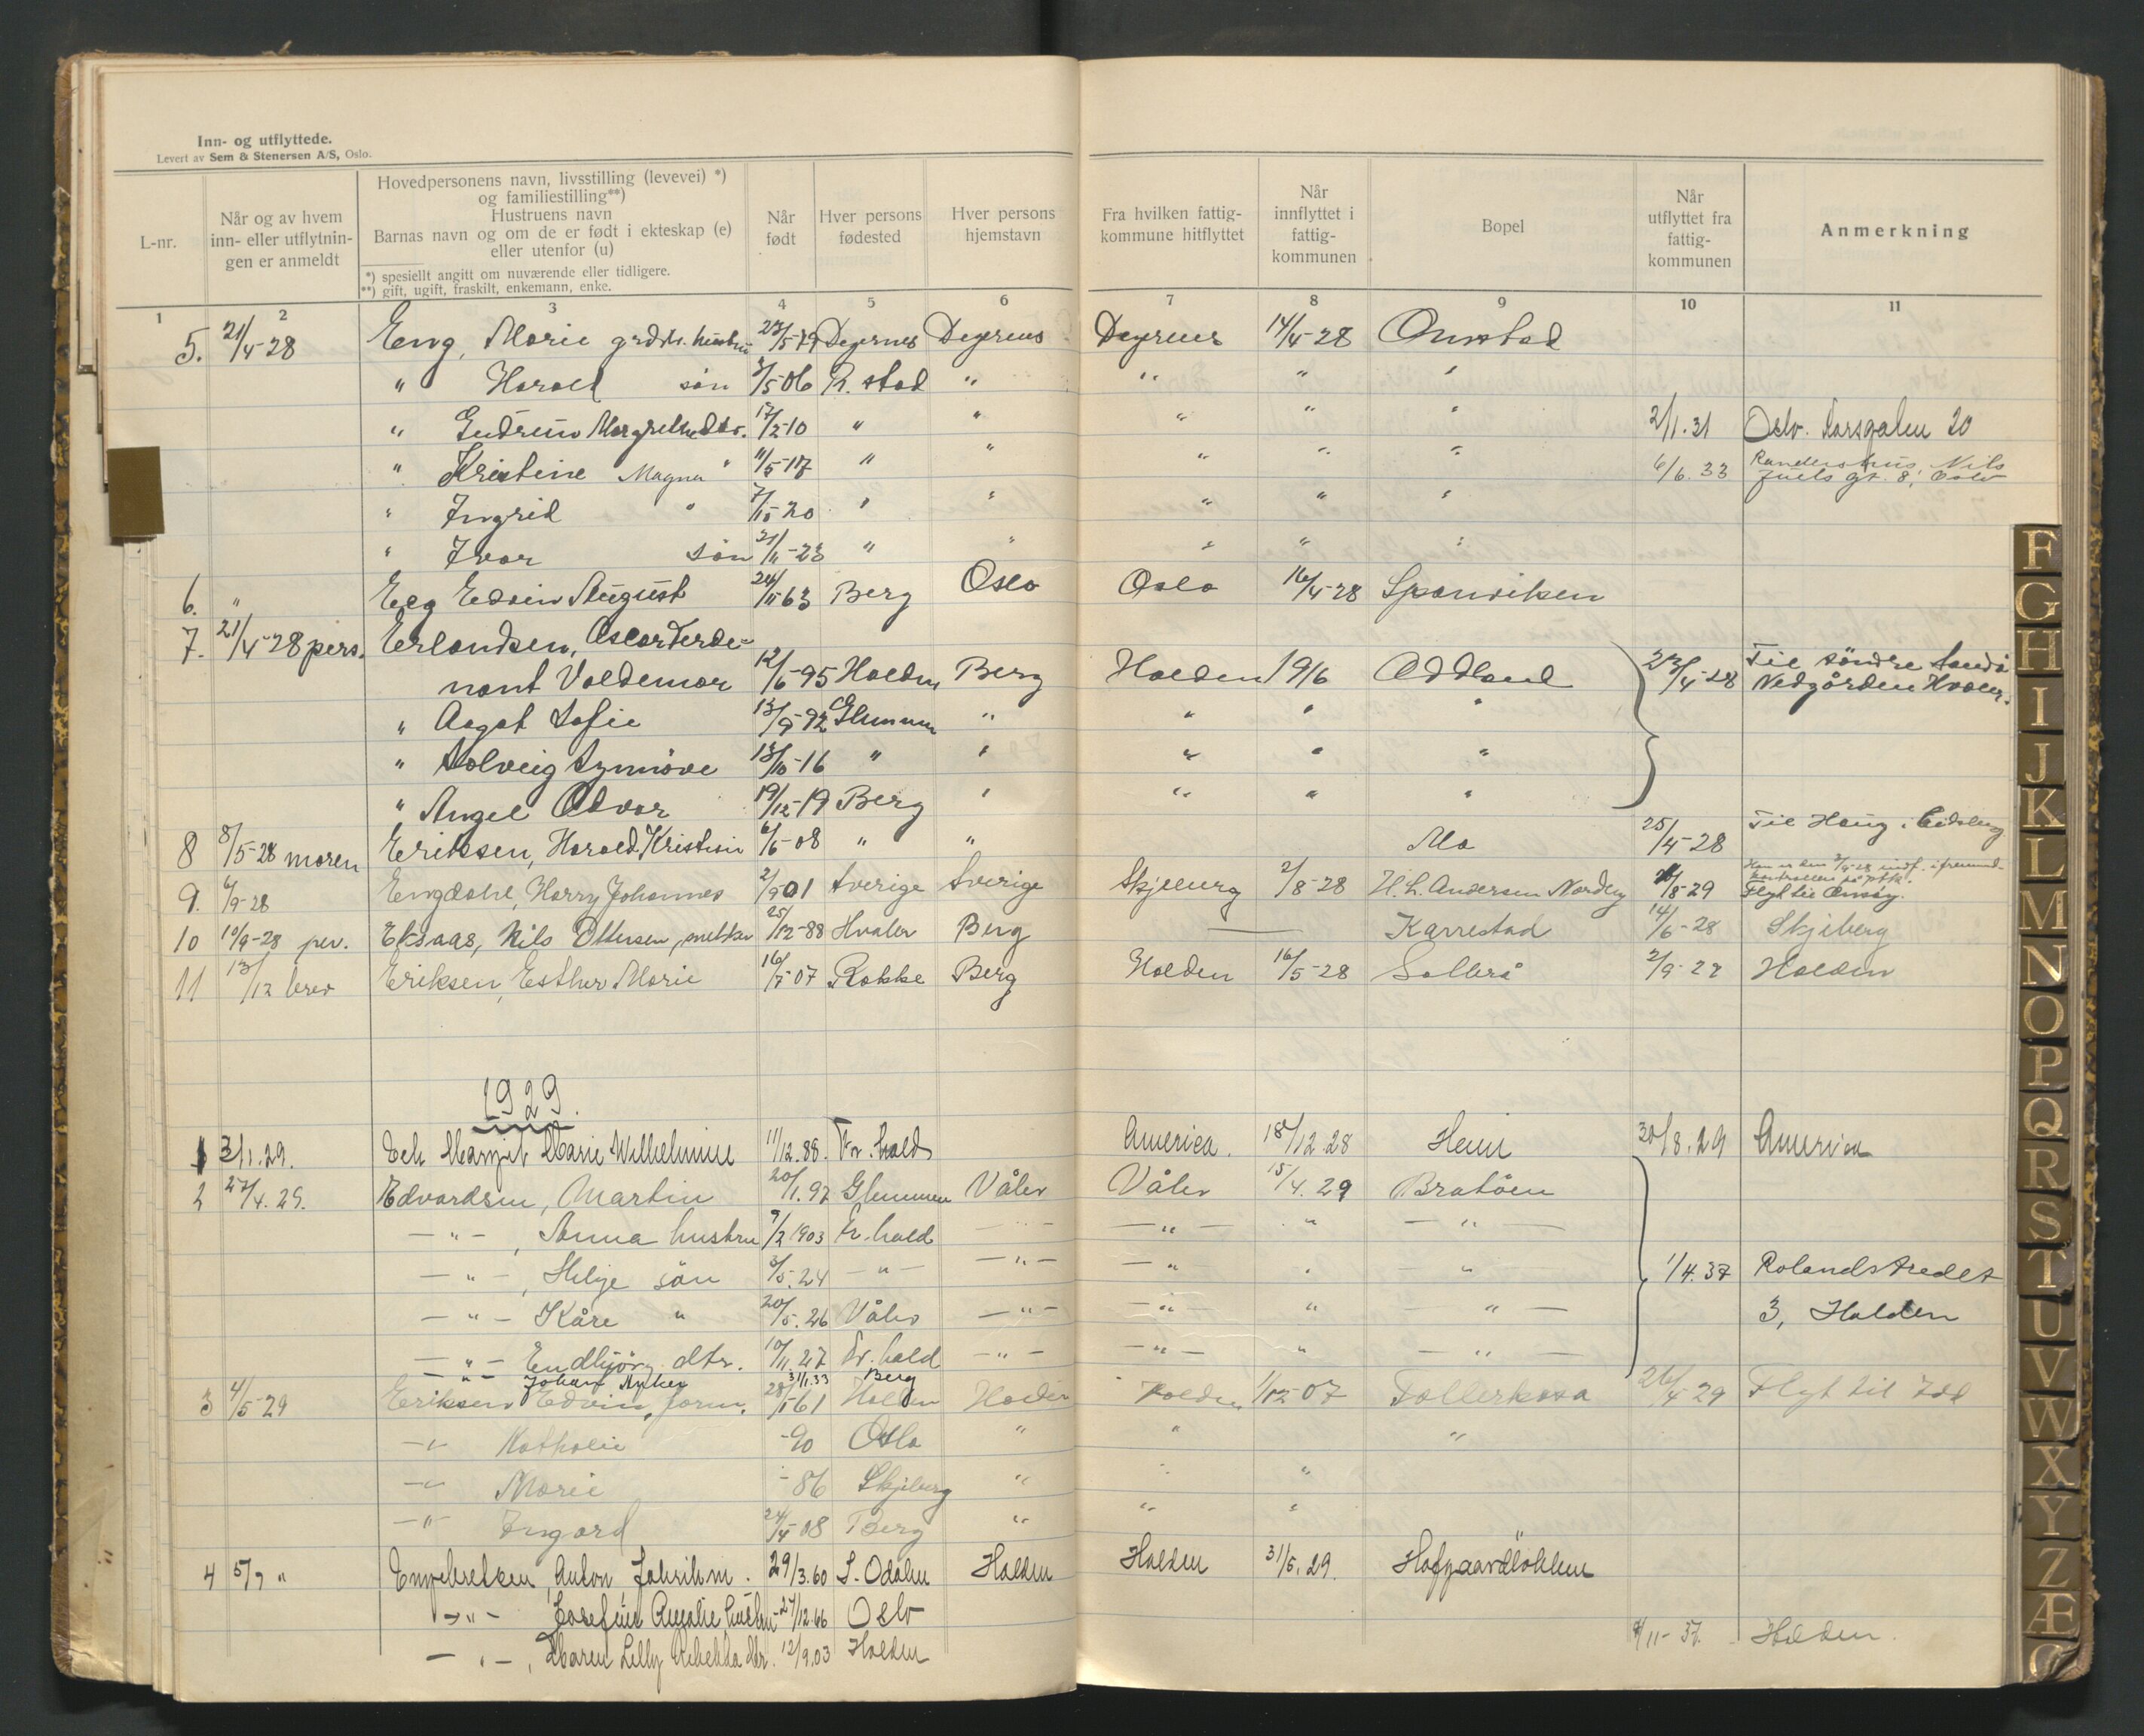 Inn- og utflyttede.
Levert av Sem & Stenersen A/S, Oslo.
L-nr.
Når og av hvem inn- eller utflytnin- gen er anmeldt
Hovedpersonens navn, livsstilling (levevei) *)
og familiestilling**)
Hustruens navn
Barnas navn og om de er født i ekteskap (e)
eller utenfor (u)
*) spesiellt angitt om nuværende eller tidligere.
**) gift, ugift, fraskilt, enkemann, enke.
Når født
Hver persons fødested
Hver persons hjemstavn
Fra hvilken fattig- kommune hitflyttet
Når innflyttet i fattig- kommunen
Bopel
Når utflyttet fra fattig- kommunen
Anmerkning
1 2 3 4 5 6 7 8 9 10 11
5. 21/4-28 Eng, Marie grdbr. hustru 23/5-79 Degernes Degernes Degernes 14/4-28 Onstad
" Harald søn 2/5 06 R. stad " " " "
" Gudrun Margrethe dtr. 17/2-10 " " " " " 2/1.31 Oslo. Korsgaten 20
" Kristine Magna " 11/5-17 " " " " " 6/6.33 Randershus, Nils
Juels gt. 8, Oslo
" Ingrid " 7/10-20 " " " " "
" Ivar søn 21/11-23 " " " " "
6. " Eeg Edvin August 24/11 63 Berg Oslo Oslo 16/4-28 Sponviken
7. 21/4-28 pers. Erlandsen, Oscar Ferde-
nant Valdemar 12/6-95 Halden Berg Halden 1916 Oddland 23/4-28 Til søndre Sandø
Nedgården Hvaler.
" Aagot Sofie 13/9-92 Glemmen " " " "
" Solveig Synnöve 13/10-16 " " " " "
" Angel Odvar 19/12-19 Berg " " " "
8 8/5-28 moren Eriksen, Harald Kristian 6/5-08 " " Mo 25/4-28 Til Haug i Eidsberg
9. 6/9-28 Engdahl, Harry Johannes 2/9 01 Sverige Sverige Skjeberg 2/8-28 H. L. Andersen Nordby /8-29 Flyt til Onsøy.
10 10/9-28 per. Eksaas, Nils Ottersen, snekker 25/12-88 Hvaler Berg — Karrestad 14/6-28 Skjeberg
11 13/12 brev Eriksen, Esther Marie 16/7-07 Rokke Berg Halden 16/5-28 Solberg 2/9-27 Halden
1929.
1 3/1.29. Eek Margit Marie Wilhelmine 11/12.88. Fr. hald America. 18/12.28 Heim 30/8.29 America
2 27/4.29. Edvardsen, Martin 20/1.97 Glemmen Våler Våler 15/4.29 Bratöen
— " — , Anna hustru 9/2 1903 Fr. hald — " — — " — " — " —
— " — , Helge sön 3/5.24 — " — — " — — " — " — " — 1/4.37 Rolandstredet
— " — Kåre " 20/5.26 Våler — " — — " — " — " — 3, Halden
— " — Endbjörg dtr. 10/11.27 Fr. hald — " — — " — " — " —
— " — Johan Anker 31/1.33 Berg
3 4/5-29 Eriksen Edvin, form. 28/1 61 Halden Halden Halden 1/12-07 Tollerkasa 26/4 29 Flyt til Idd
— " Kathalie -90 Oslo " " "
— " Marie -86 Skjeberg " " "
— " Ingard 24/4-08 Berg " " "
4 5/7 " Engebretsen, Anton, fabrikm. 29/3.60 S. Odalen Halden Halden 31/5.29. Hofgaardlökken
— " — Josefine Amalie hustru 27/12.66 Oslo
— " — , Maren Lilly Rebekka dtr. 12/9.03 Halden 4/11-37. Halden.
F
G
H
I
J
K
L
M
N
O
P
Q
R
S
T
U
V
W
X
Y
Z
Æ